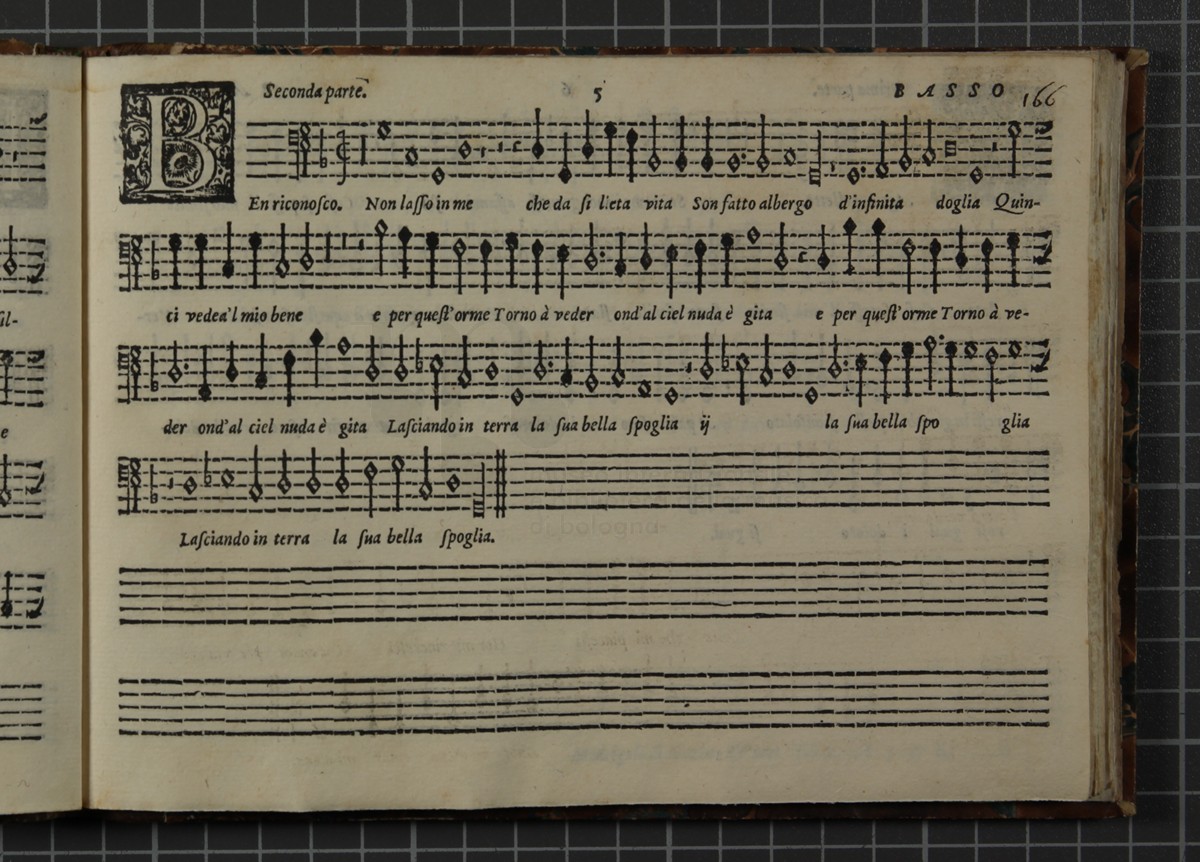 Seconda parte. 5 BASSO 166
BEn riconosco. Non lasso in me che da sì lieta vita Son fatto albergo d'infinita doglia Quin-
ci vedea'l mio bene e per quest'orme Torno à veder ond'al ciel nuda è gita e per quest'orme Torno à ve-
der ond'al ciel nuda è gita Lasciando in terra la sua bella spoglia ij la sua bella spo glia
Lasciando in terra la sua bella spoglia.
di bologna